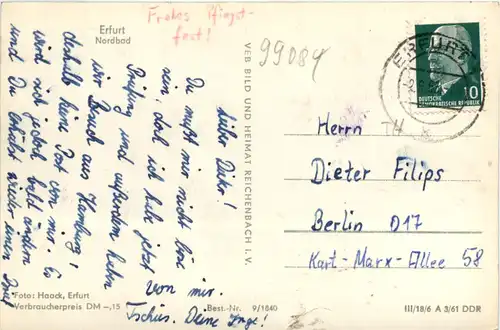 Erfurt
Nordbad
Frohes Pfingst-
fest!
99084
Lieber Dieter!
Du mußt mir nicht böse
sein, doch ich habe jetzt
Prüfung und außerdem haben
wir Besuch aus Hamburg!
deshalb keine Post von mir. Es
wird sich jedoch bald ändern
und Du erhältst wieder einen Brief
von mir.
Tschüs. Deine Inge!
VEB BILD UND HEIMAT REICHENBACH I. V.
ERFURT
10
DEUTSCHE
DEMOKRATISCHE REPUBLIK
Herrn
Dieter Filips
Berlin O17
Karl-Marx-Allee 58
Foto: Haack, Erfurt
Verbraucherpreis DM -,15
Best.-Nr. 9/1640
III/18/6 A 3/61 DDR